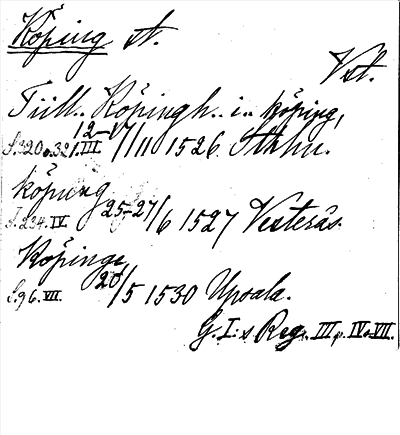 Köping st.
Vst.
Tull.. Köpingh.. i.. köping,
S. 320 o. 321. III. 12–17/11 1526. Sthlm.
köping
S. 234. IV. 25–27/6 1527 Vesterås.
Köpinge
S. 96. VII. 20/5 1530 Upsala.
G. I:s Reg. III, IV o. VII.